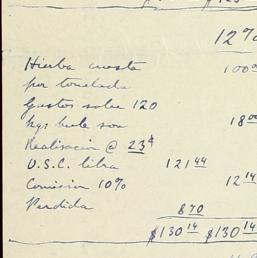 12%
Hierba cuesta 100 00
por tonelada
Gastos sobre 120
kgs hule son 18 00
Realisación @ 23¢
U.S.C. libra 121 44
Comision 10% 12 14
Perdida 8 70
$130 14 $130 14